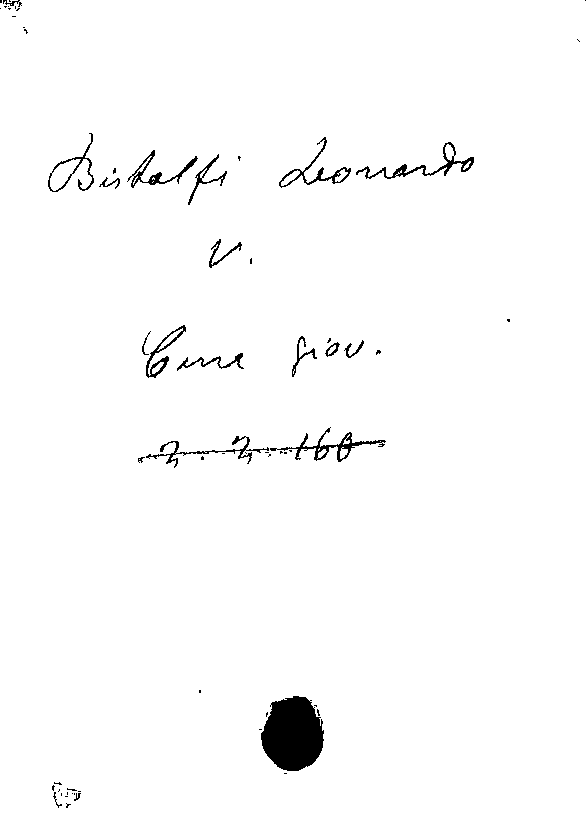 Bistolfi Leonardo
V.
Cena Giov.
2. 2. 160